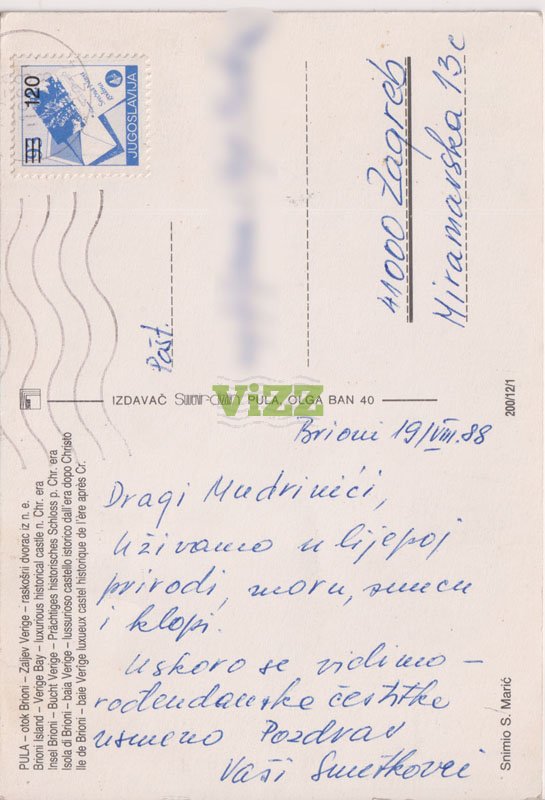 120
93
JUGOSLAVIJA
Pošt.
41000 Zagreb
Miramarska 13c
IZDAVAČ
PULA, OLGA BAN 40
ViZZ
200/12/1
Brioni 19/VIII.88
Dragi Mudrinići,
Uživamo u lijepoj
prirodi, moru, suncu
i klopi.
Uskoro se vidimo –
rođendanske čestitke
usmeno Pozdrav
Vaši Smetkovci
PULA – otok Brioni – Zaljev Verige – raskošni dvorac iz n. e.
Brioni Island – Verige Bay – luxurious historical castle n. Chr. era
Insel Brioni – Bucht Verige – Prächtiges historisches Schloss p. Chr. era
Isola di Brioni – baia Verige – lussurioso castello istorico dall'era dopo Christo
Ile de Brioni – baie Verige luxueux castel historique de l'ère après Cr.
Snimio S. Marić